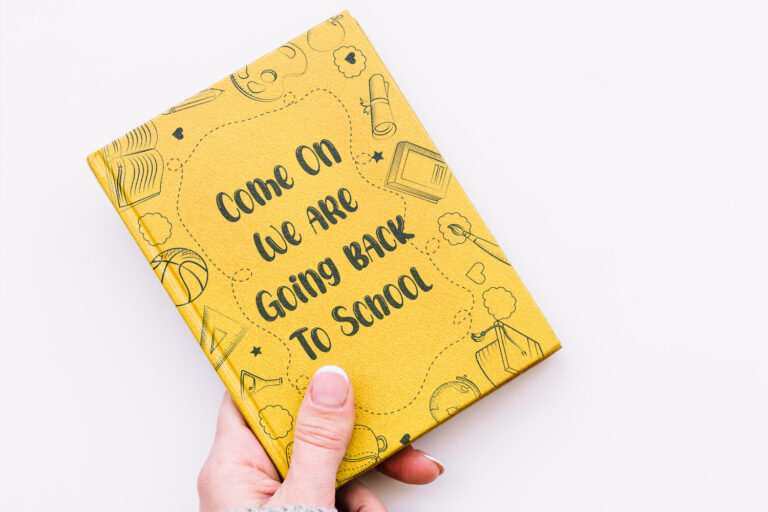 Come On
We Are
Going Back
To School